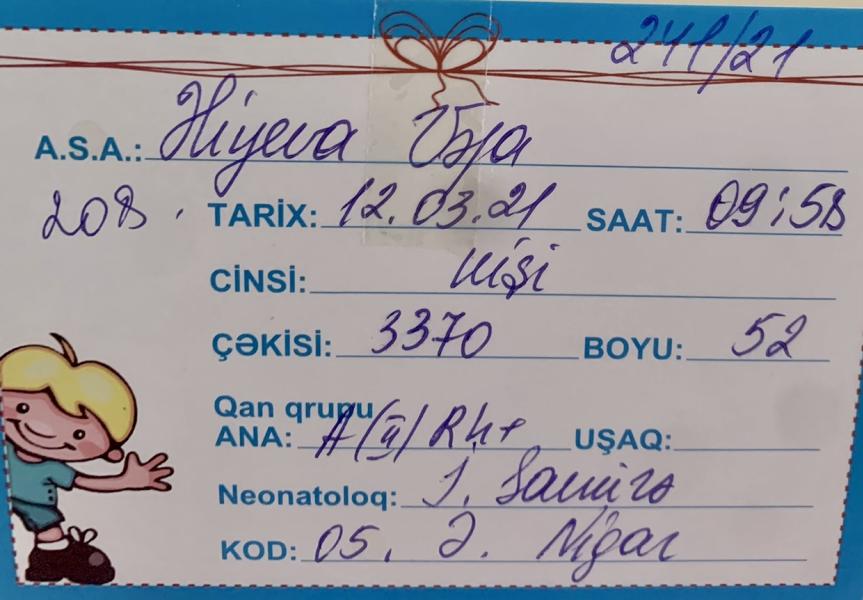 241/21
A.S.A.: Əliyeva Ülya
208. TARİX: 12.03.21 SAAT: 09:58
CİNSİ: kişi
ÇƏKİSİ: 3370 BOYU: 52
Qan qrupu
ANA: A(II) Rh+ UŞAQ:
Neonatoloq: Samirə
KOD: 05. Ə. Nigar